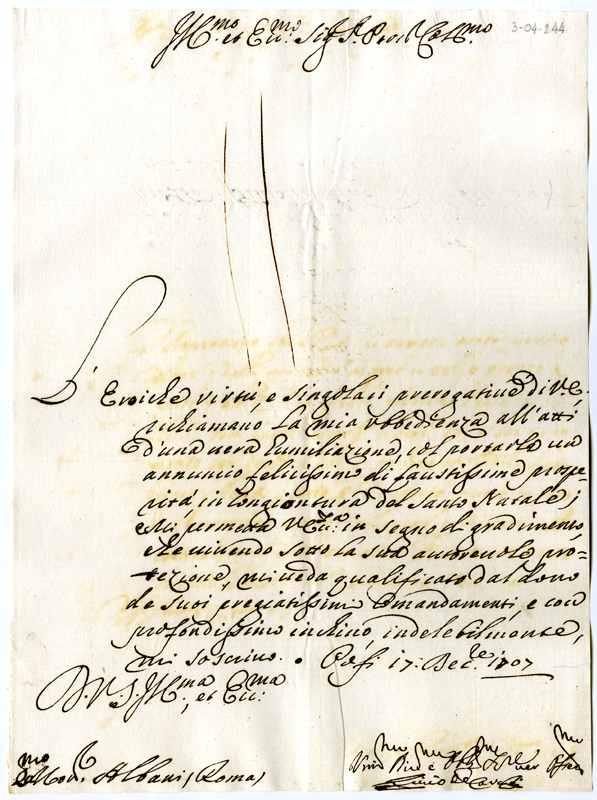 Ill.mo et Ecc.mo Sig.r P.ron Col.mo
3-04-244
L'Eroiche virtù, e singolari prerogative di V.E.
richiamano la mia obbedienza all'atti
d'una vera humiliazione, col portarle un
annuncio felicissimo di faustissime prospe=
rità, in congiontura del Santo Natale;
Mi permetta V. Ecc.za in segno di gradimento,
che vivendo sotto la sua autorevole pro=
tezione, mi veda qualificato dal dono
de suoi pregiatissimi Comandamenti, e con
profondissimo inchino, indelebilmente,
mi soscrivo. 17: Dec.re 1707
D.V.S. Ill.ma, et Ecc.ma
Albani (Roma)